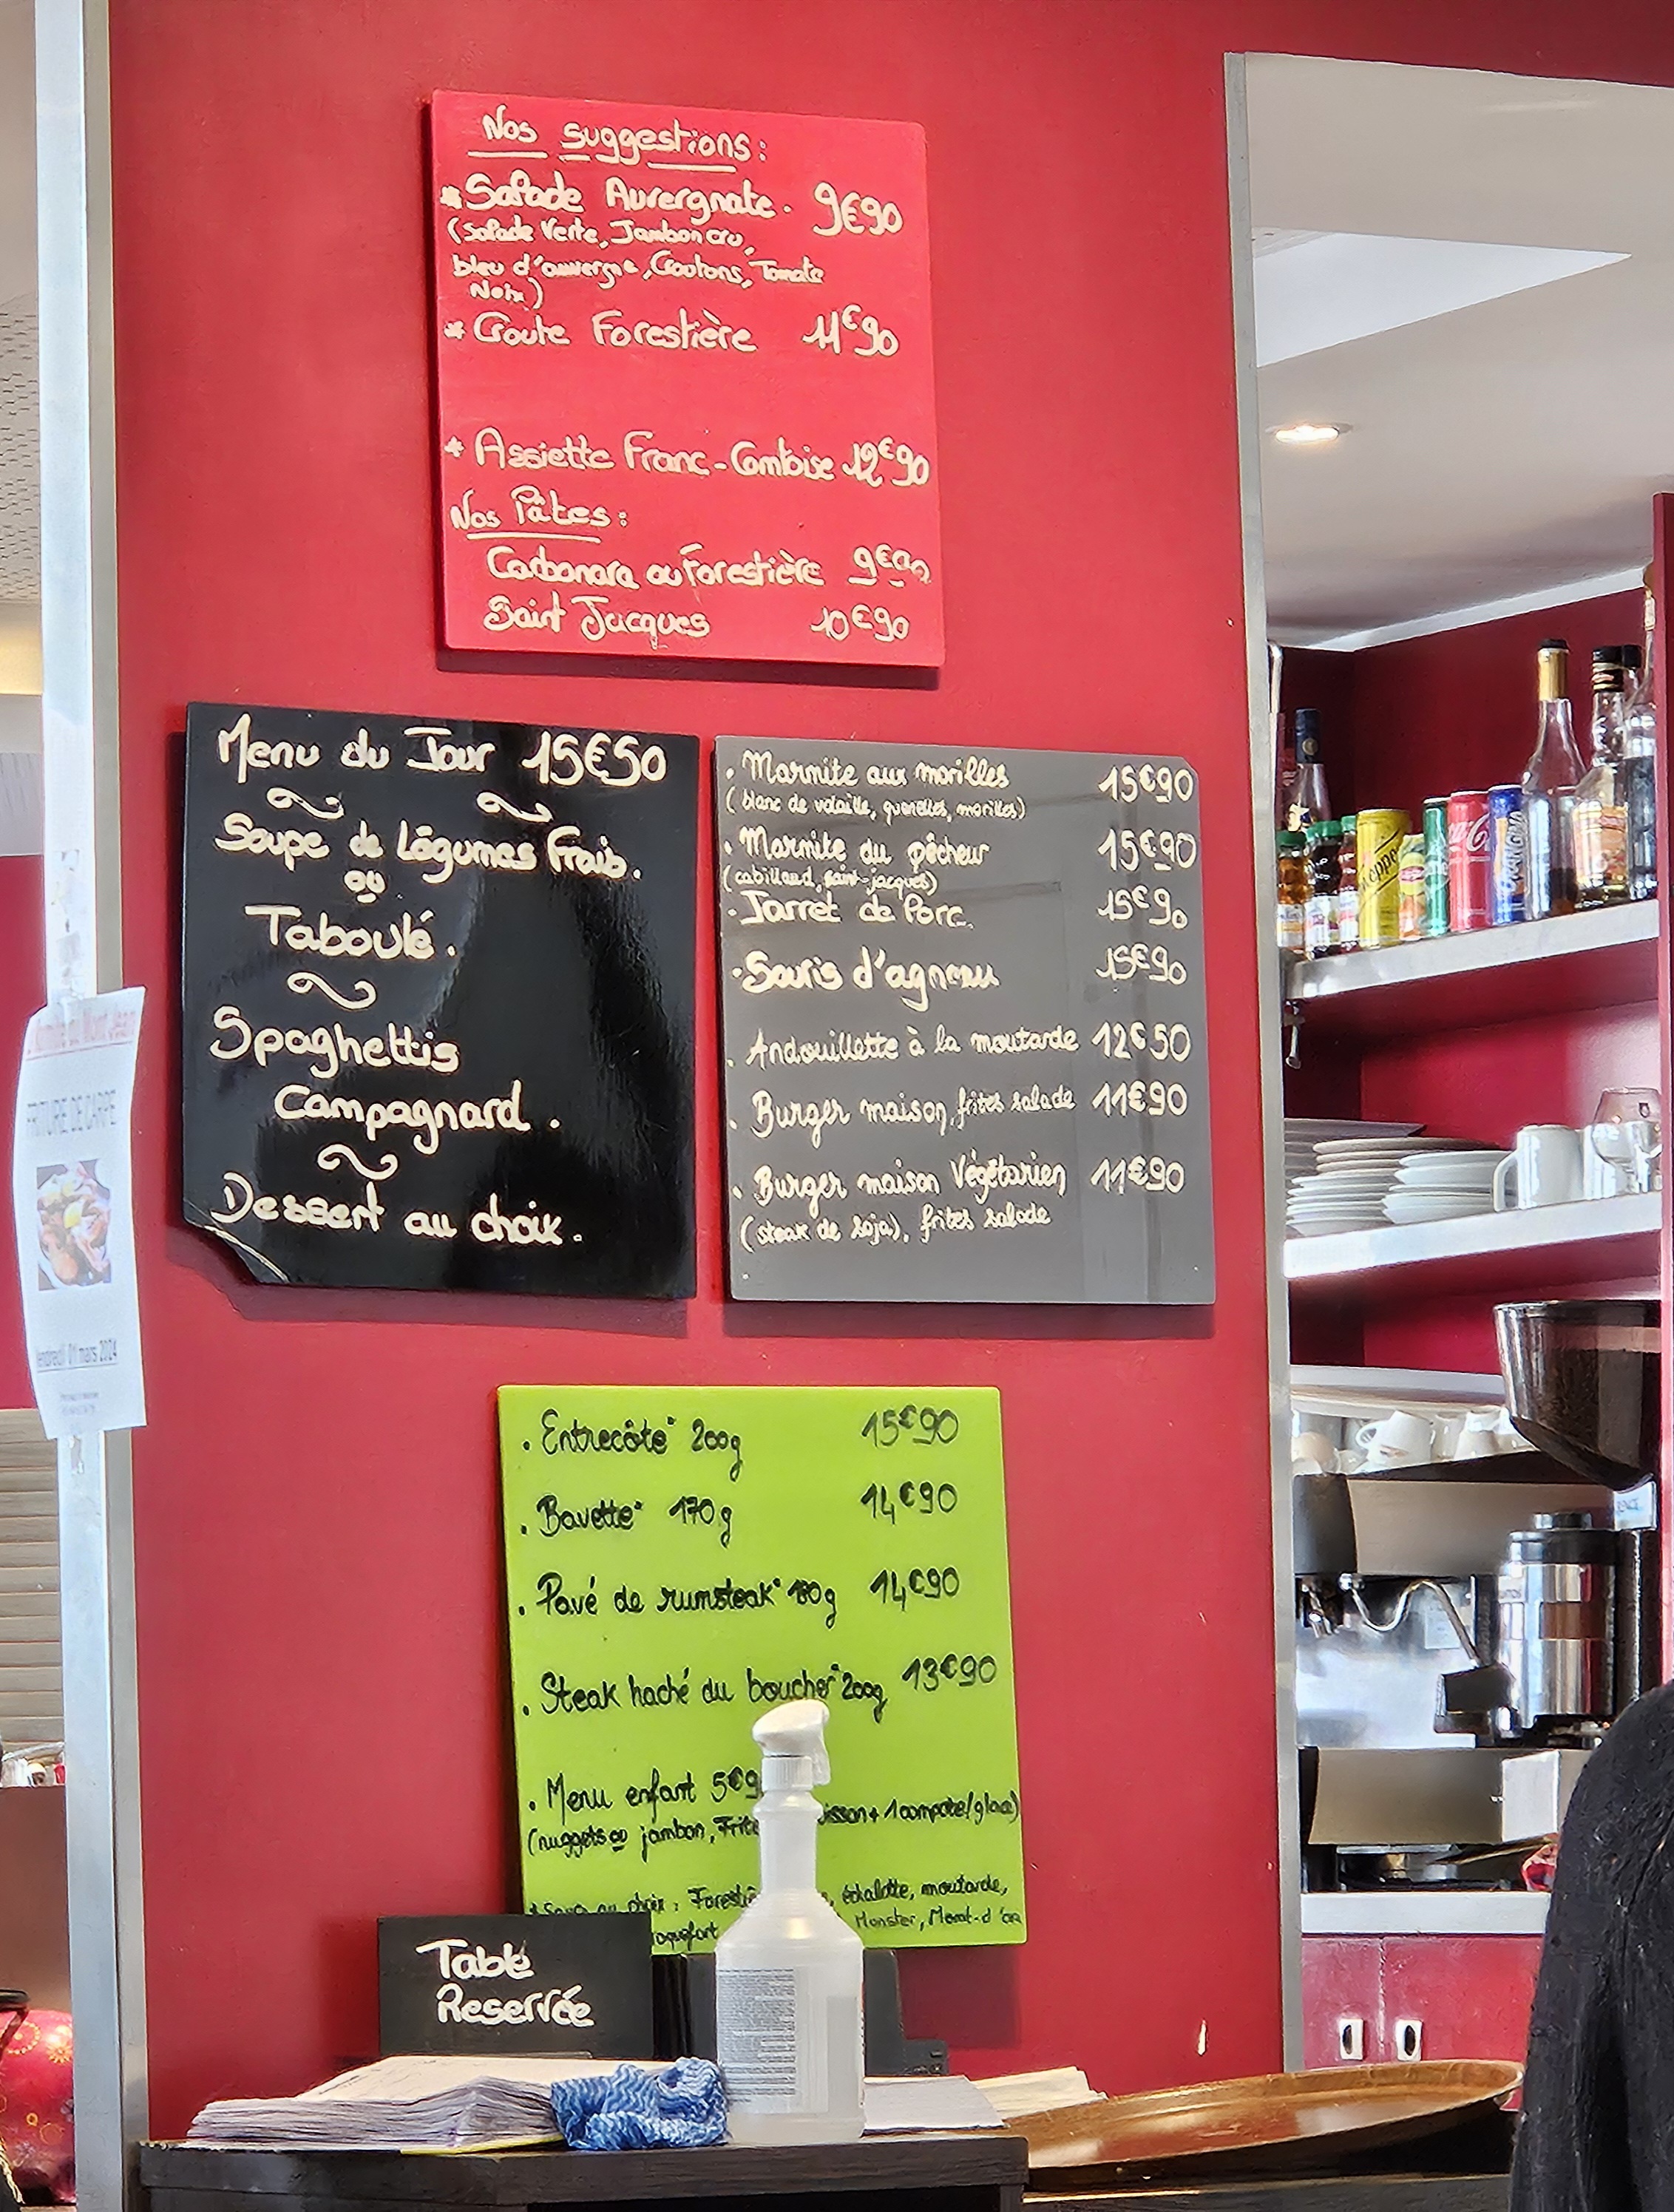 Nos suggestions:
* Salade Auvergnate. 9€90
(salade Verte, Jambon cru,
bleu d'auvergne, Croutons, Tomate
Noix)
* Croute Forestière 11€90
* Assiette Franc-Comtoise 12€90
Nos Pâtes:
Carbonara ou Forestière 9€90
Saint Jacques 10€90
Menu du Jour 15€50
Soupe de Légumes Frais.
ou
Taboulé.
Spaghettis
Campagnard.
Dessert au choix.
. Marmite aux morilles 15€90
(blanc de volaille, quenelles, morilles)
. Marmite du pêcheur 15€90
(cabillaud, saint-jacques)
. Jarret de Porc. 15€90
. Souris d'agneau 15€90
. Andouillette à la moutarde 12€50
. Burger maison, frites salade 11€90
. Burger maison Végétarien 11€90
(steak de soja), frites salade
. Entrecôte* 200g 15€90
. Bavette* 170g 14€90
. Pavé de rumsteak* 180g 14€90
. Steak haché du boucher* 200g 13€90
. Menu enfant 5€9
(nuggets ou jambon, Frite isson + 1 compote/glace)
* Sauce au choix : Foresti , échalotte, moutarde,
oquefort Munster, Mont-d'or
Table
Reservée
FRITURE DE CARPE
Vendredi 01 mars 2024